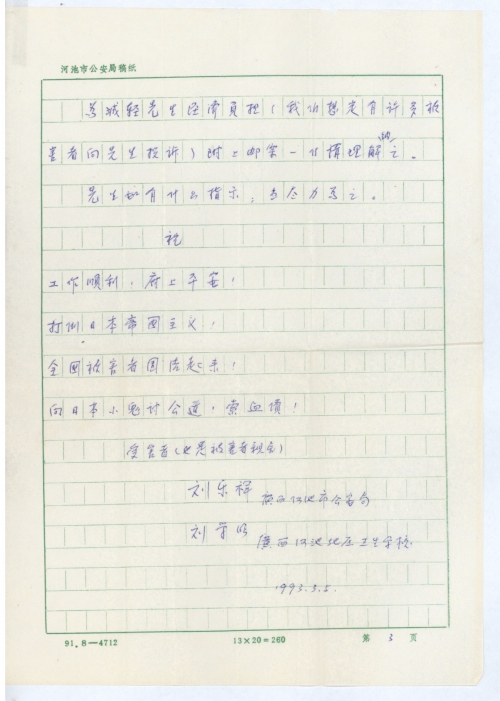 河池市公安局稿纸
为减轻先生经济负担（我们想定有许多被
害者向先生投诉）附上邮票一 请理解 之。
先生如有什么指示，当尽力为之。
祝
工作顺利，府上平安！
打倒日本帝国主义！
全国被害者团结起来！
向日本小鬼讨公道，索血债！
受害者（也是被害者亲兄）
刘乐 广西河池市公安局
刘 广西河池地区卫生学校
1993.5.5.
91.8—4712 13×20=260 第 3 页